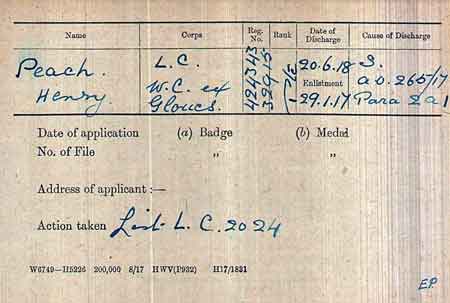 Name Corps Reg. No. Rank Date of Discharge Cause of Discharge
Peach. L.C. 421343 20.6.18 S.
W.C. ex Enlistment a.o. 265/17
Henry Gloucs. 32915 29.1.17 Para 2 a 1
Date of application (a) Badge (b) Medal
No. of File „ „
Address of applicant :—
Action taken List L.C. 2024
W6749—H5226 200,000 8/17 HWV(P932) H17/1831
EP